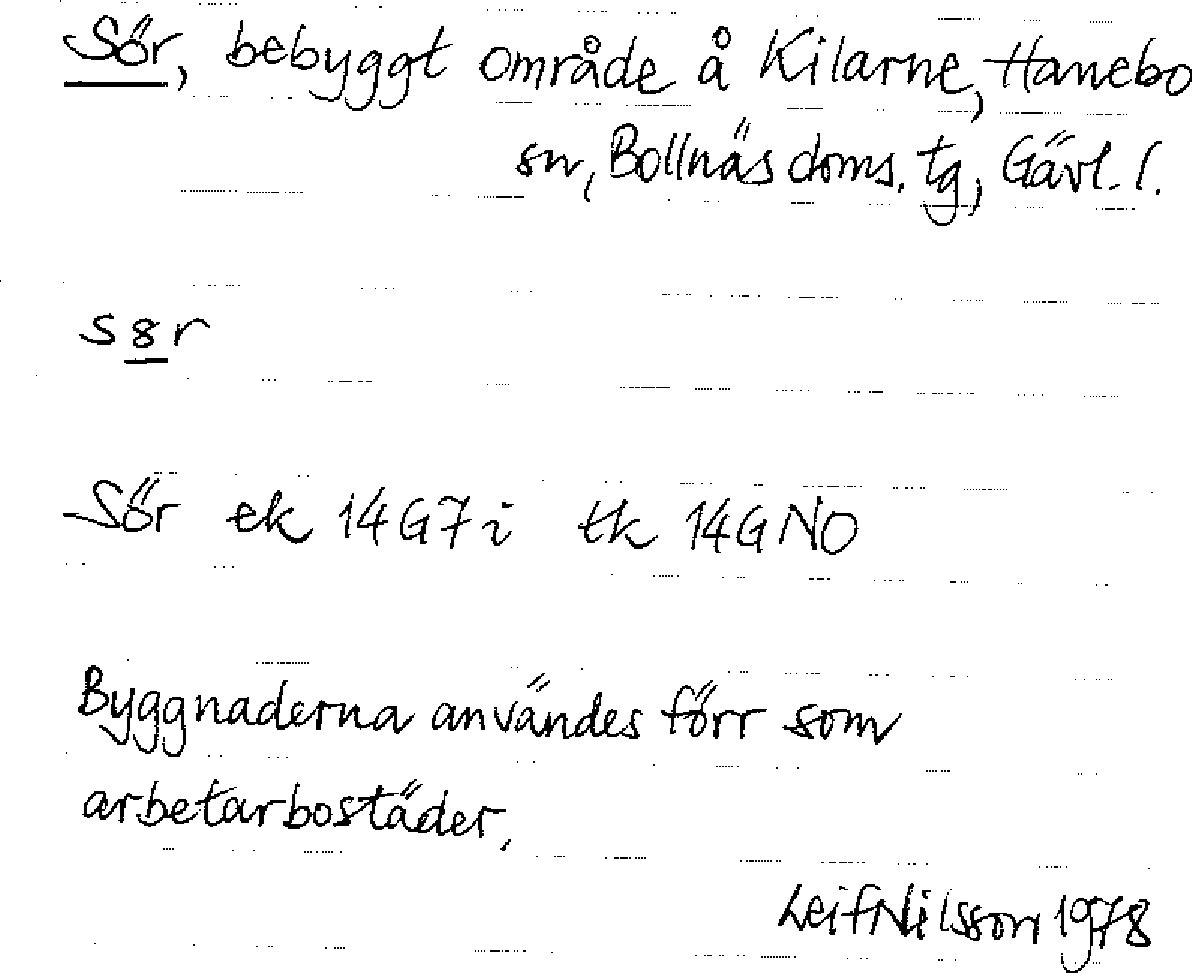 Sör, bebyggt område å Kilarne, Hanebo
sn, Bollnäs doms. tg, Gävl. l.
s8r
Sör ek 14G7i tk 14GNO
Byggnaderna användes förr som
arbetarbostäder.
Leif Nilsson 1978